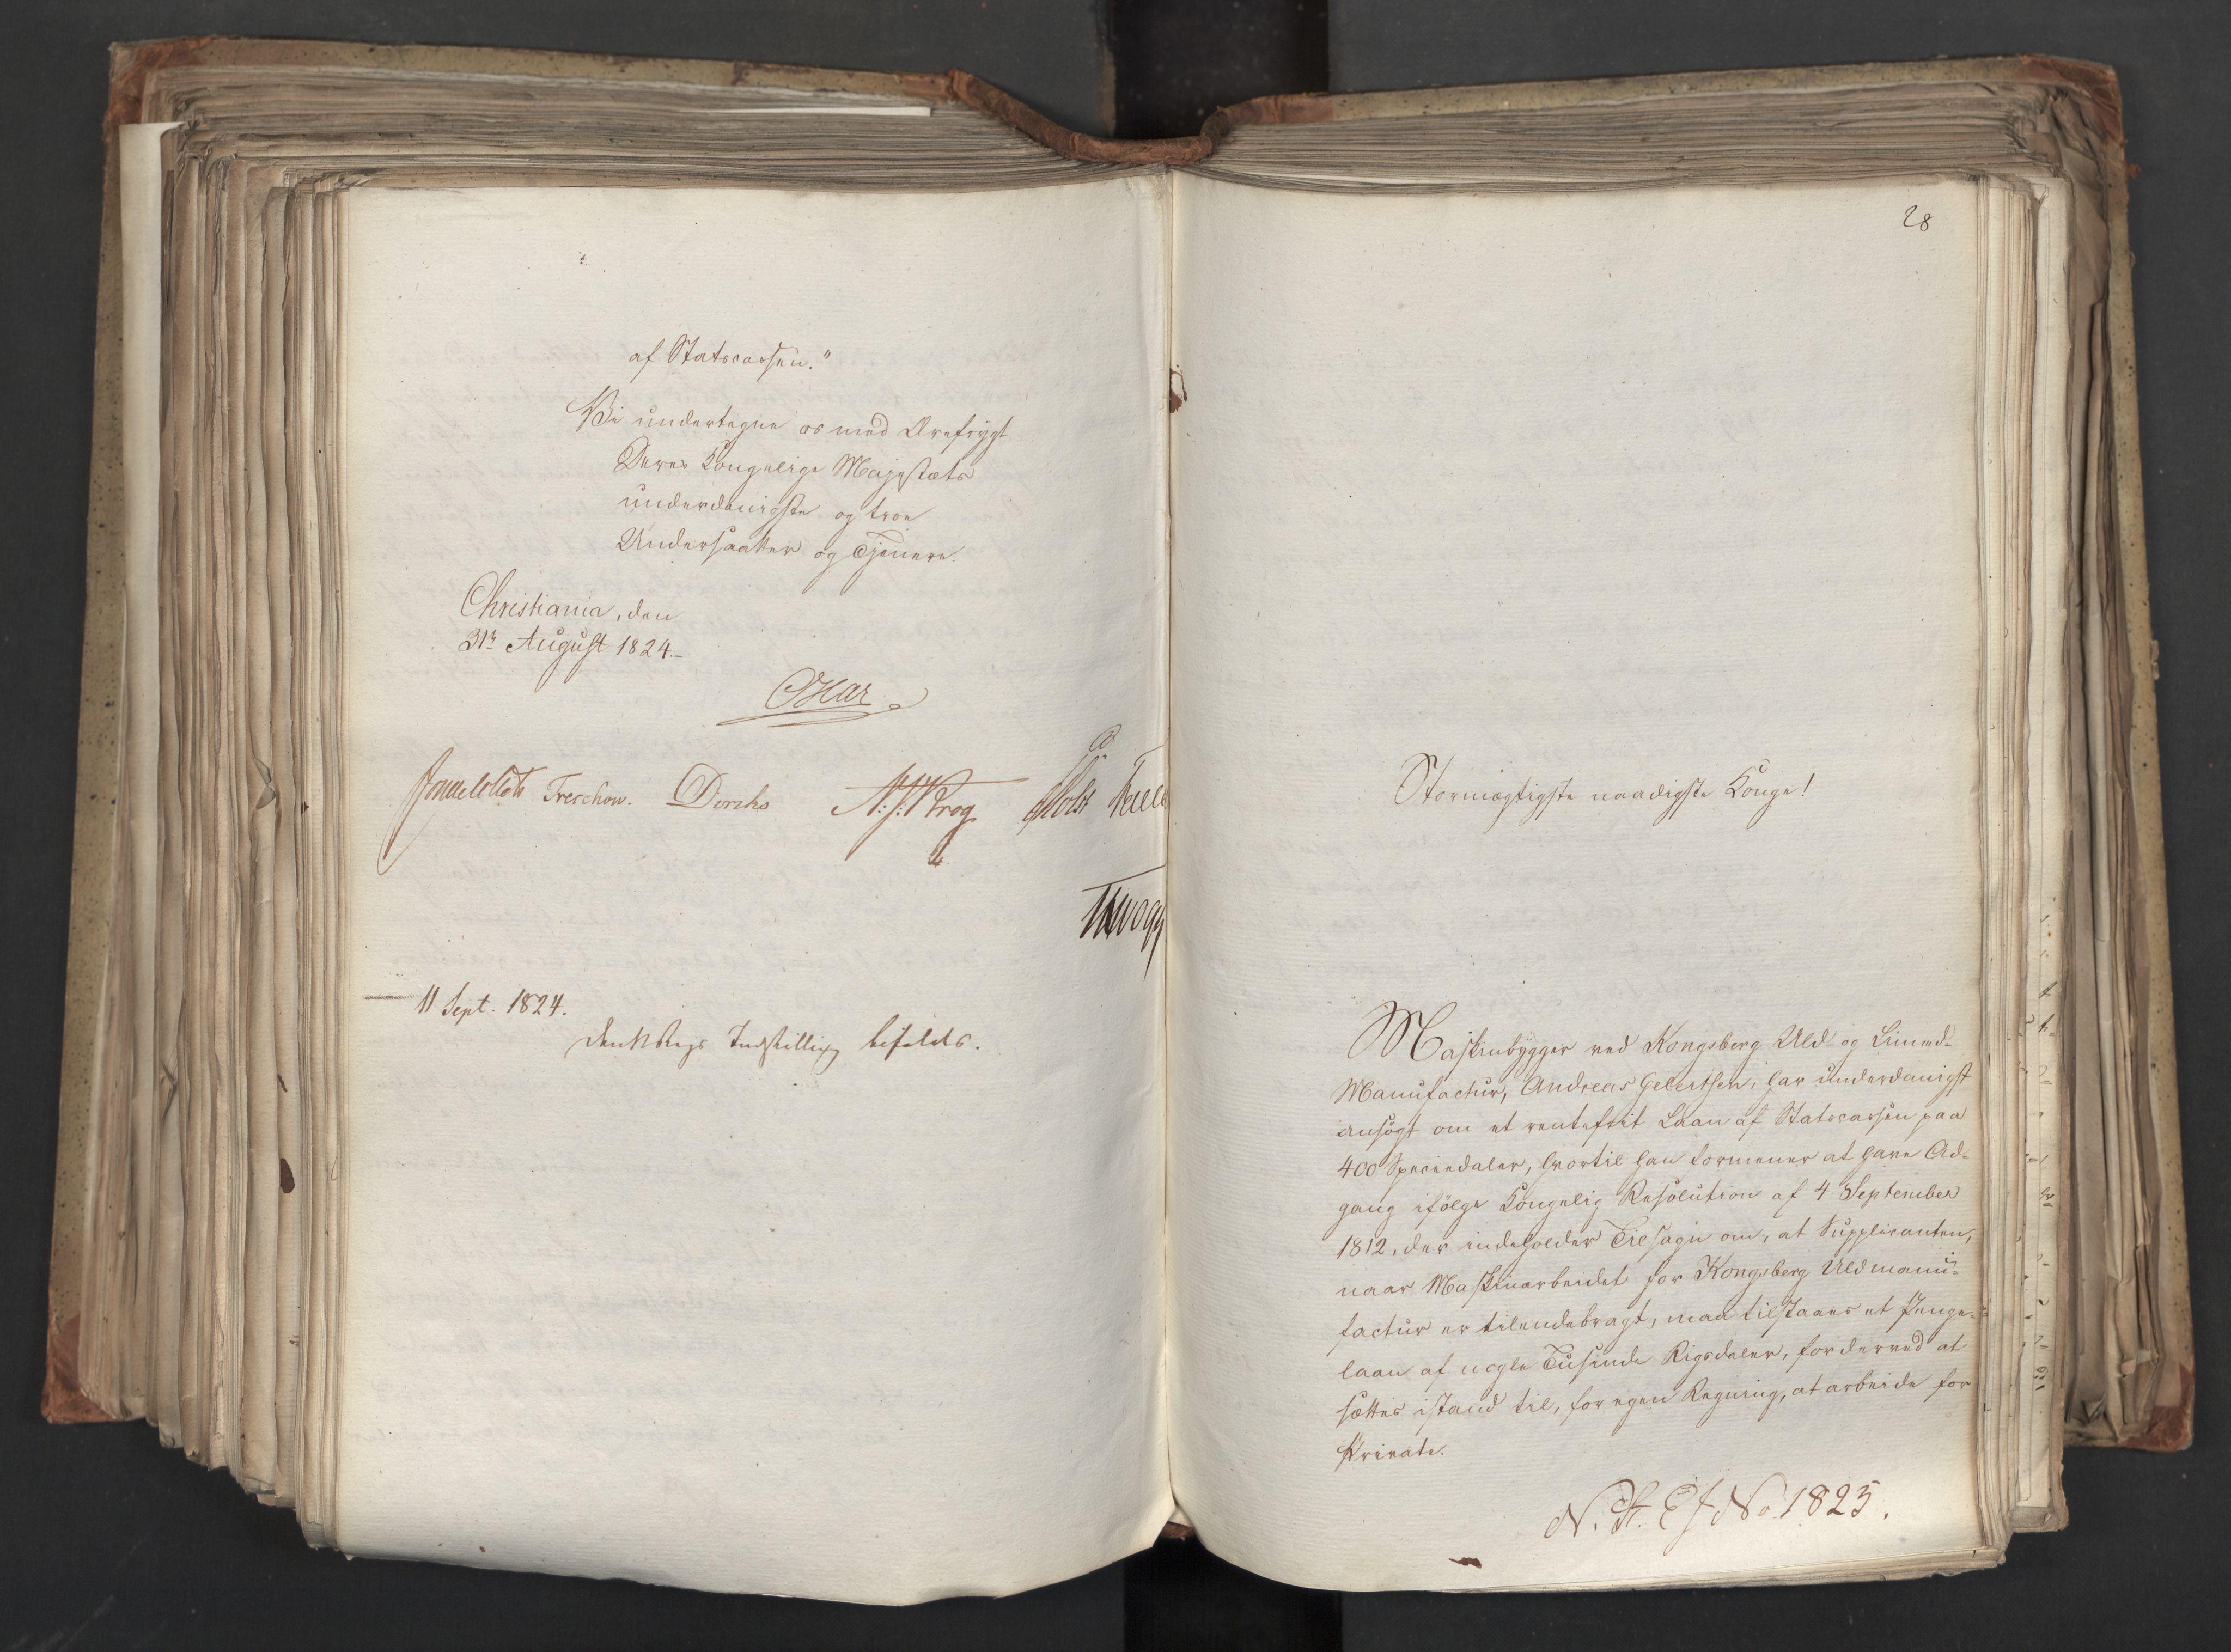 af Statscassen."
Vi undertegne os med Ærefrygt
Deres Kongelige Majestæts
underdanigste og troe
Undersaatter og Tjenere.
Christiania, den
31te August 1824.
Oscar
Treschow. Diriks N: J: Krog Holst
11 Sept. 1824.
Indstilling bifaldes.
28
Stormægtigste naadigste Konge!
Maskinbygger ved Kongsberg Uld- og Linned-
Manufactur, Andreas Geeltsen, har underdanigst
ansøgt om et rentefrit Laan af Statscassen paa
400 Speciedaler, hvortil han formener at have Ad-
gang ifölge Kongelig Resolution af 4 September
1812, der indeholder Tilsagn om, at Supplicanten,
naar Maskinarbeidet for Kongsberg Uldmanu-
factur er tilendebragt, maa tilstaaes et Penge-
laan af nogle Tusinde Rigsdaler, for derved at
sættes istand til, for egen Regning, at arbeide for
Private.
N. St. E J No 1825.